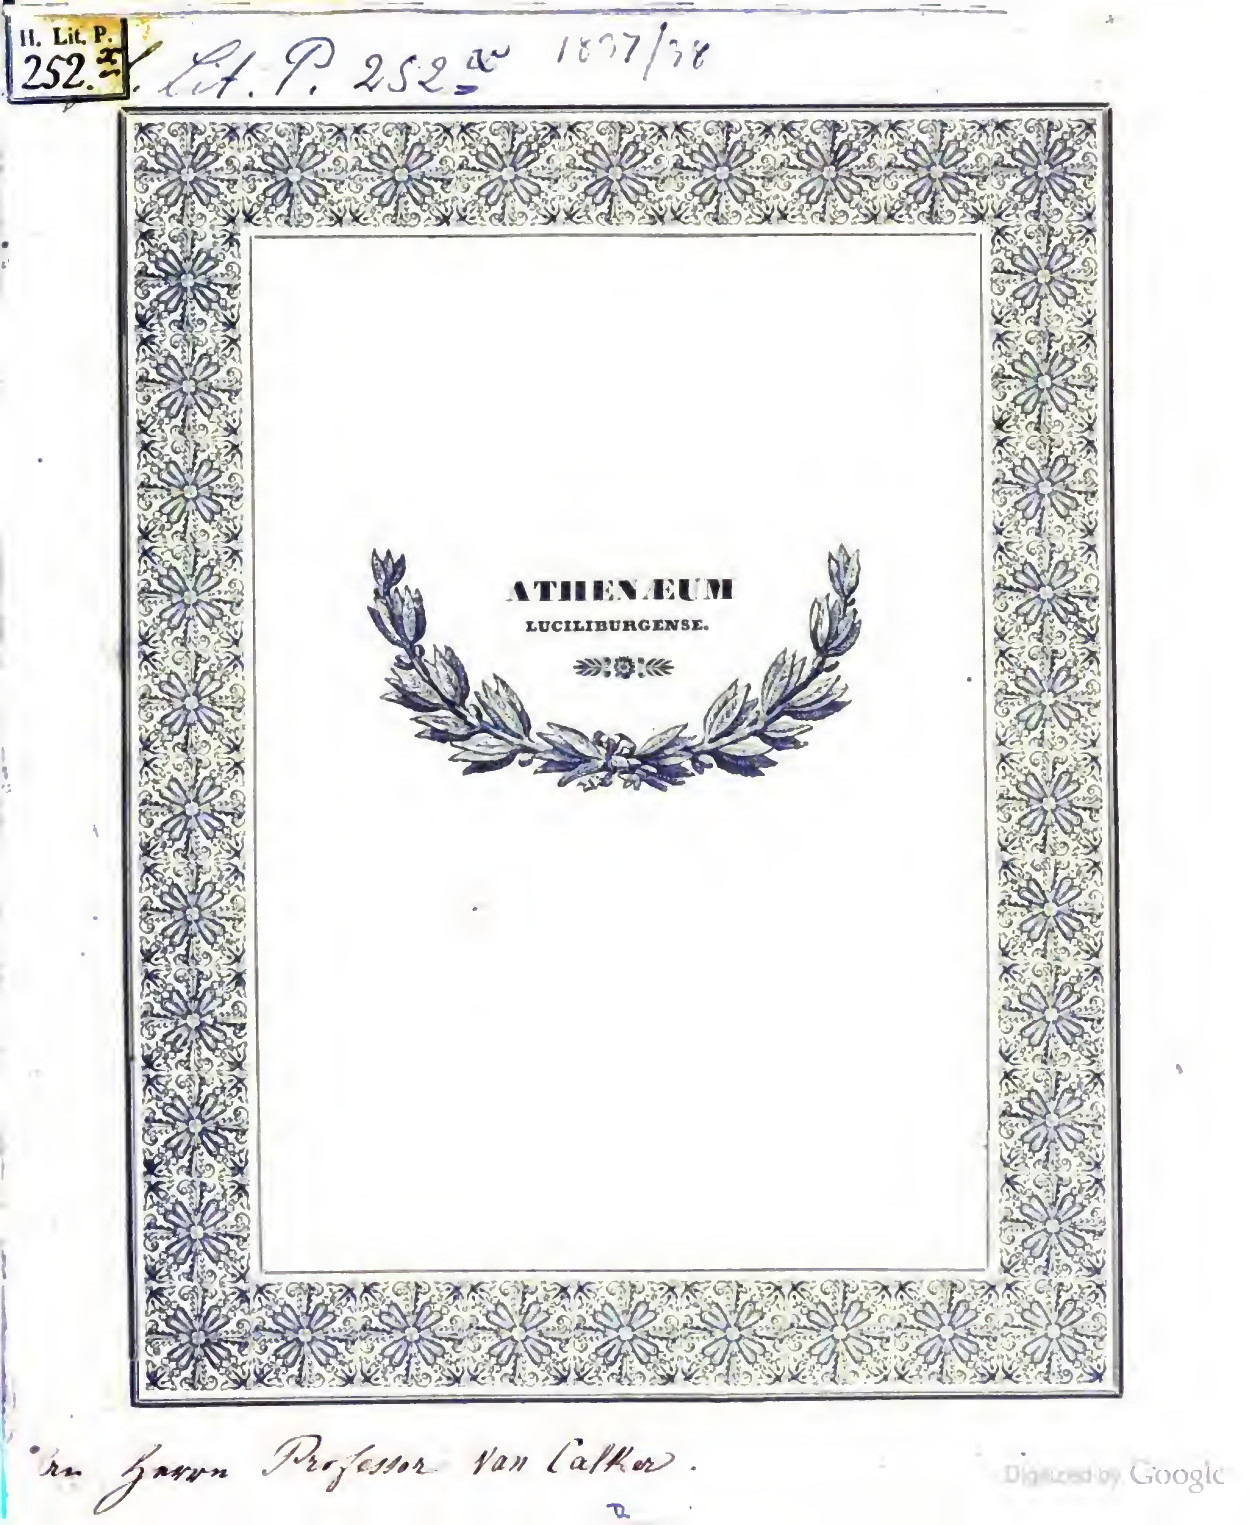 H. Lit. P.
252.x
Lit. P. 252 x 1837/38
ATHENÆUM
LUCILIBURGENSE.
Herrn Professor van Calker.
Digitized by Google